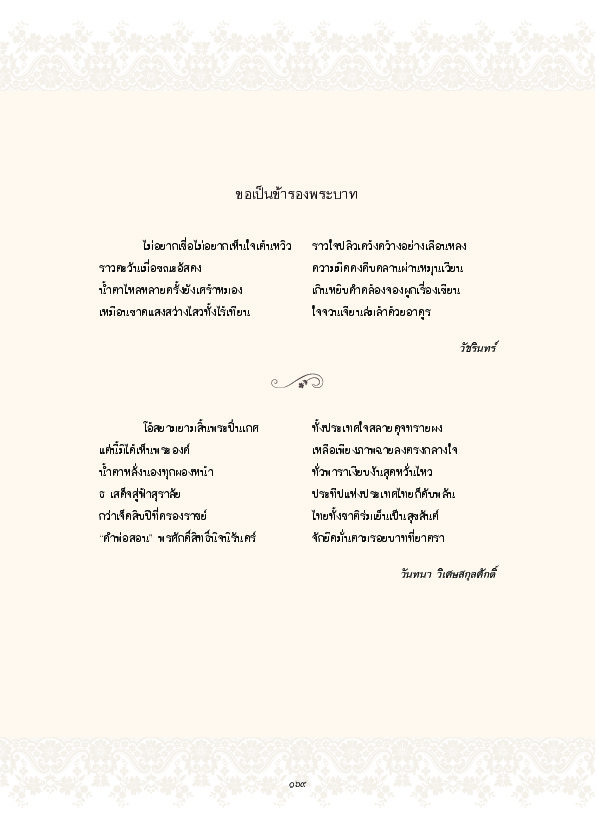 ขอเป็นข้ารองพระบาท
ไม่อยากเชื่อไม่อยากเห็นใจเต้นหวิว ราวใจปลิวเคว้งคว้างอย่างเลือนหลง
ราวตะวันเมื่อขณะอัสดง ความมืดคงคืบคลานผ่านหมุนเวียน
น้ำตาไหลหลายครั้งยังเศร้าหมอง เกินหยิบคำคล้องจองผูกเรื่องเขียน
เหมือนขาดแสงสว่างไสวทั้งไร้เทียน ใจจวนเจียนล่มลำด้วยอาดูร
วัชรินทร์
โอ้สยามยามสิ้นพระปิ่นเกศ ทั้งประเทศใจสลายดุจทรายผง
แต่นี้มิได้เห็นพระองค์ เหลือเพียงภาพฉายลงตรงกลางใจ
น้ำตาหลั่งนองทุกผองหน้า ทั่วพาราเงียบงันสุดหวั่นไหว
ธ เสด็จสู่ฟ้าสุราลัย ประทีปแห่งประเทศไทยก็ดับพลัน
กว่าเจ็ดสิบปีที่ครองราชย์ ไทยทั้งชาติร่มเย็นเป็นสุขสันต์
“คำพ่อสอน” พรศักดิ์สิทธิ์นิจนิรันดร์ จักยึดมั่นตามรอยบาทที่ยาตรา
วันทนา วิเศษสกุลศักดิ์
๑๖๙